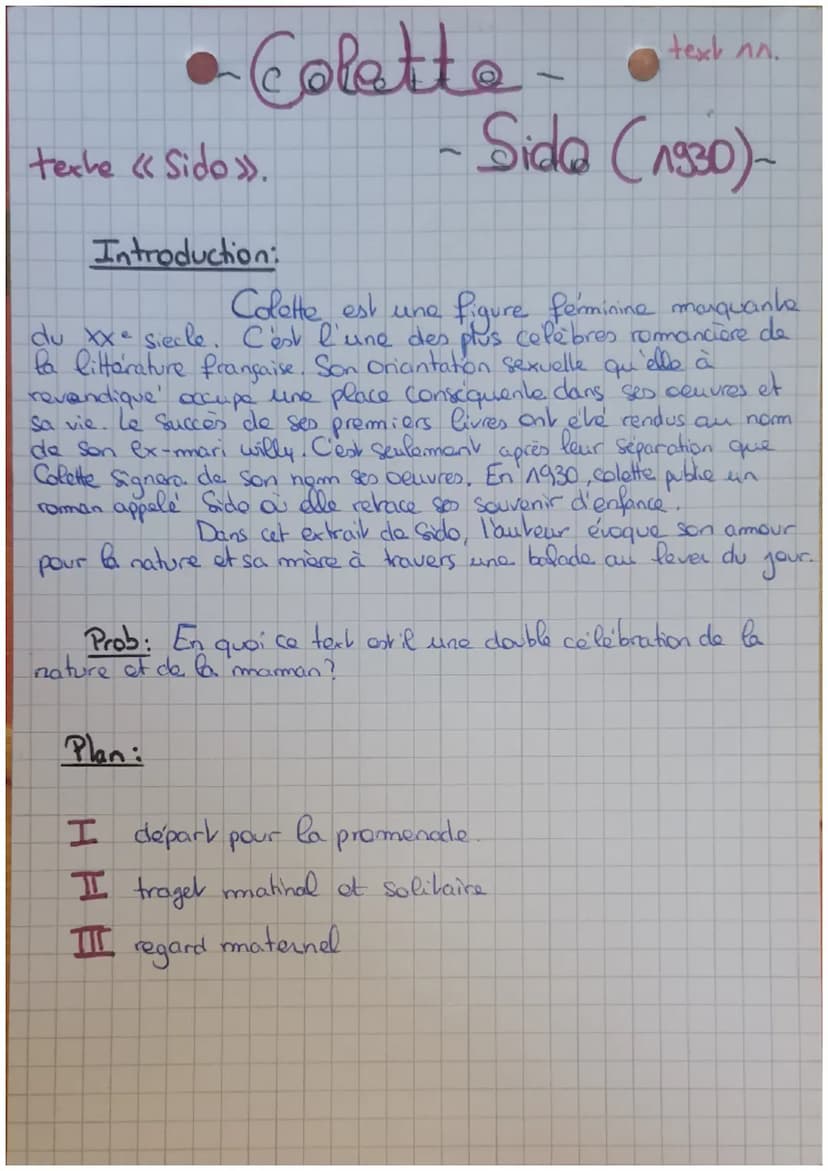 - Colette -
text nn.
- Sido (1930) -
texte « Sido ».
Introduction:
Colette est une figure féminine marquante
du XXe siecle. C'est l'une des plus celèbres romancière de
la littérature française. Son oriantation sexuelle qu'elle à
revandiqué occupe une place conséquente dans ses oeuvres et
sa vie. Le succès de ses premiers livres ont été rendus au nom
de son ex-mari willy. C'est seulement après leur séparation que
Colette signera de son nom ses oeuvres. En 1930, colette publie un
roman appelé Sido où elle retrace ses souvenir d'enfance.
Dans cet extrait de Sido, l'auteur évoque son amour
pour la nature et sa mère à travers une balade au lever du jour.
Prob: En quoi ce text est il une double célébration de la
nature et de la maman?
Plan:
I départ pour la promenade.
II traget matinal et solitaire
III regard maternel